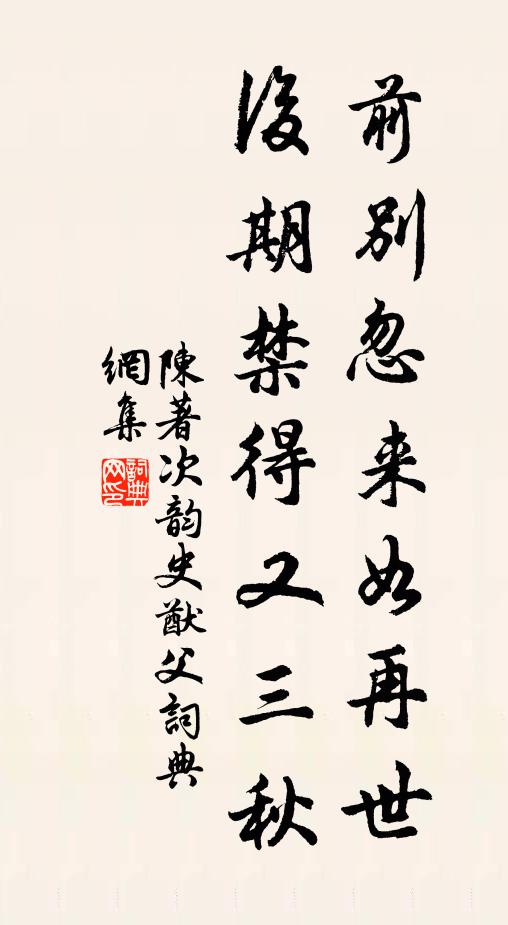 前別忽来如再世
後期禁得又三秋
陳著次韵史猷父詞典
網集
詞典网印